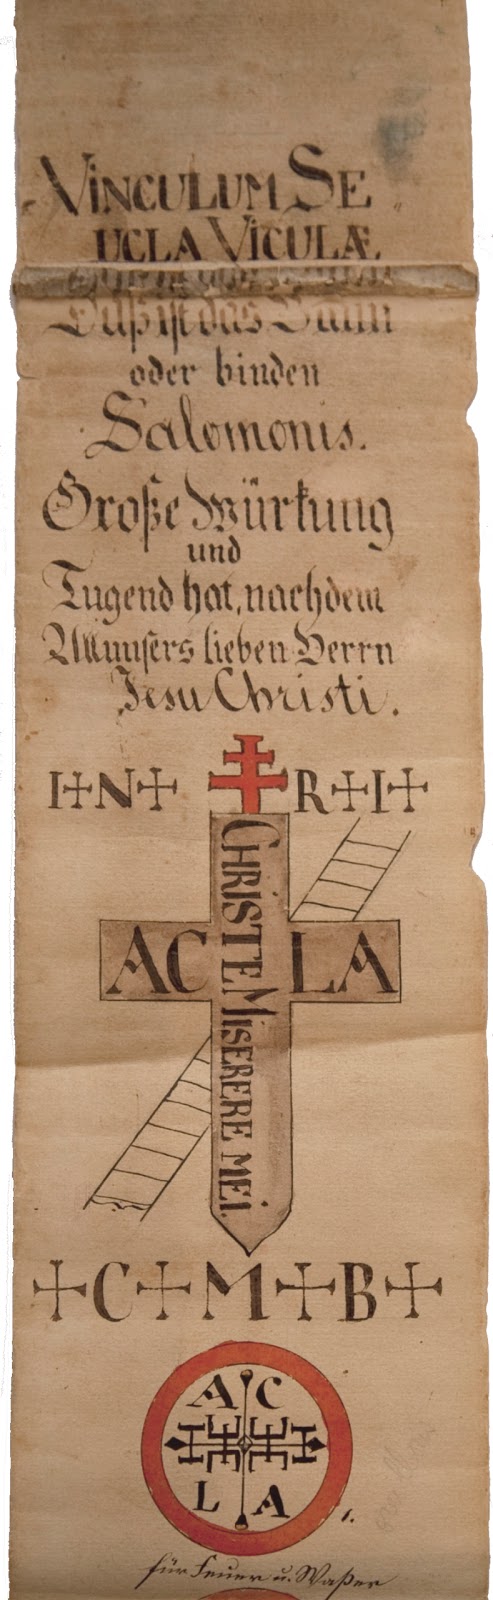 VINCULUM SE
UCLA VICULÆ.
Daß ist das Bann
oder binden
Salomonis.
Große Würkung
und
Tugend hat, nachdem
unsers lieben Herrn
Jesu Christi.
I+N+ R+I+
CHRISTE MISERERE MEI.
AC LA
+C+M+B+
A C
L A
1.
für Feuer u. Waßer